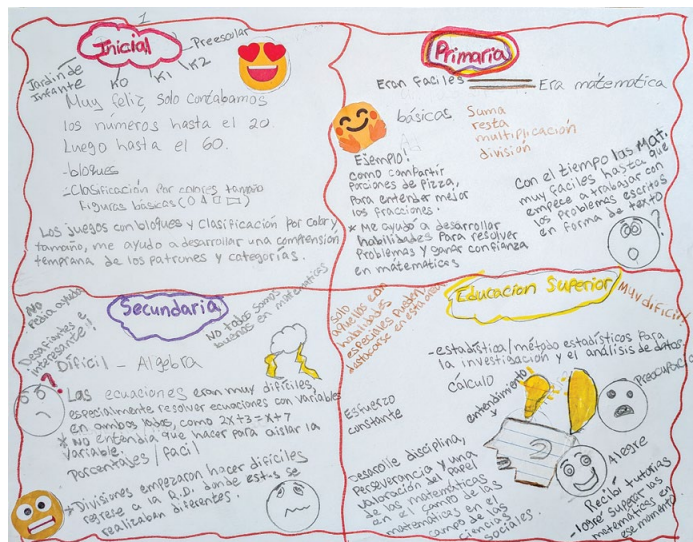 1
Inicial
Preescolar
Jardin de
Infante
K0 K1 K2
Muy feliz, solo contabamos
los números hasta el 20
Luego hasta el 60.
-bloques
-Clasificación por colores tamaño
Figuras básicas
Los juegos con bloques y clasificación por color y
tamaño, me ayudo a desarrollar una comprensión
temprana de los patrones y categorias.
Primaria
Eran Faciles Era mátematica
básicas
Suma
resta
multiplicación
división
Ejemplo!
como compartir
porciones de pizza,
para entender mejor
las fracciones.
* Me ayudó a desarrollar
habilidades para resolver
problemas y ganar confianza
en matemáticas
Con el tiempo las Mat.
muy fáciles hasta que
empece a trabajar con
los problemas escritos
en forma de texto
?
Secundaria
No
Pedia ayuda
Desafiantes e
interesante!!
No todos somos
buenos en matematicas
Dificil - Algebra
?
Las ecuaciones eran muy dificiles,
especialmente resolver ecuaciones con variables
en ambos lados, como 2x+3=x+7
* No entendia que hacer para aislar la
variable.
Porcentajes/facil
* Divisiones empezaron hacer dificiles
regrese a la R.D. donde estas se
realizaban diferentes.
Educacion Superior
solo
aquellos con
habilidades
especiales pueden
destacarse en esta area
Muy dificil
-estadística/método estadísticos para
la investigación y el análisis de datos-
Cálculo
entendimiento
Preocupación
Esfuerzo
constante
Desarolle disciplina,
Perseverancia y una
valoración del papel
de las matemáticas
en el campo de las
matemáticas en el
campo de las
ciencias
sociales.
2
Alegre
Recibí tutorias
-logré superar las
matemáticas en
ese momento.